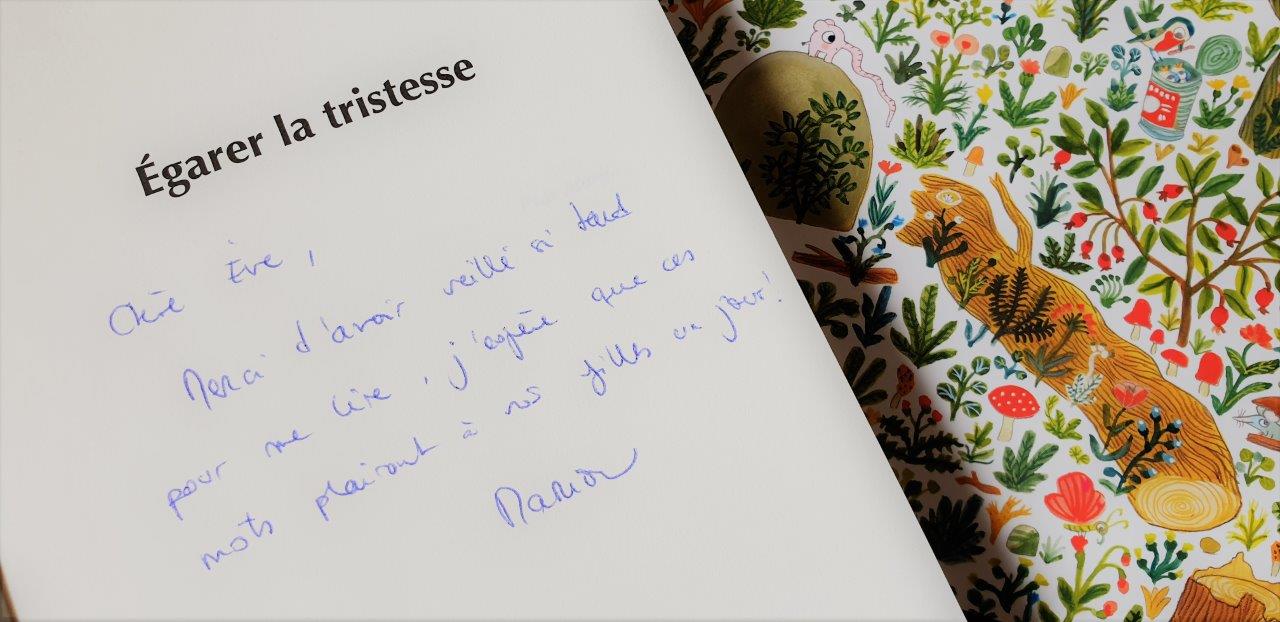 Égarer la tristesse
Chère Ève,
Merci d'avoir veillé si tard
pour me lire, j'espère que ces
mots plairont à nos filles un jour!
Marion